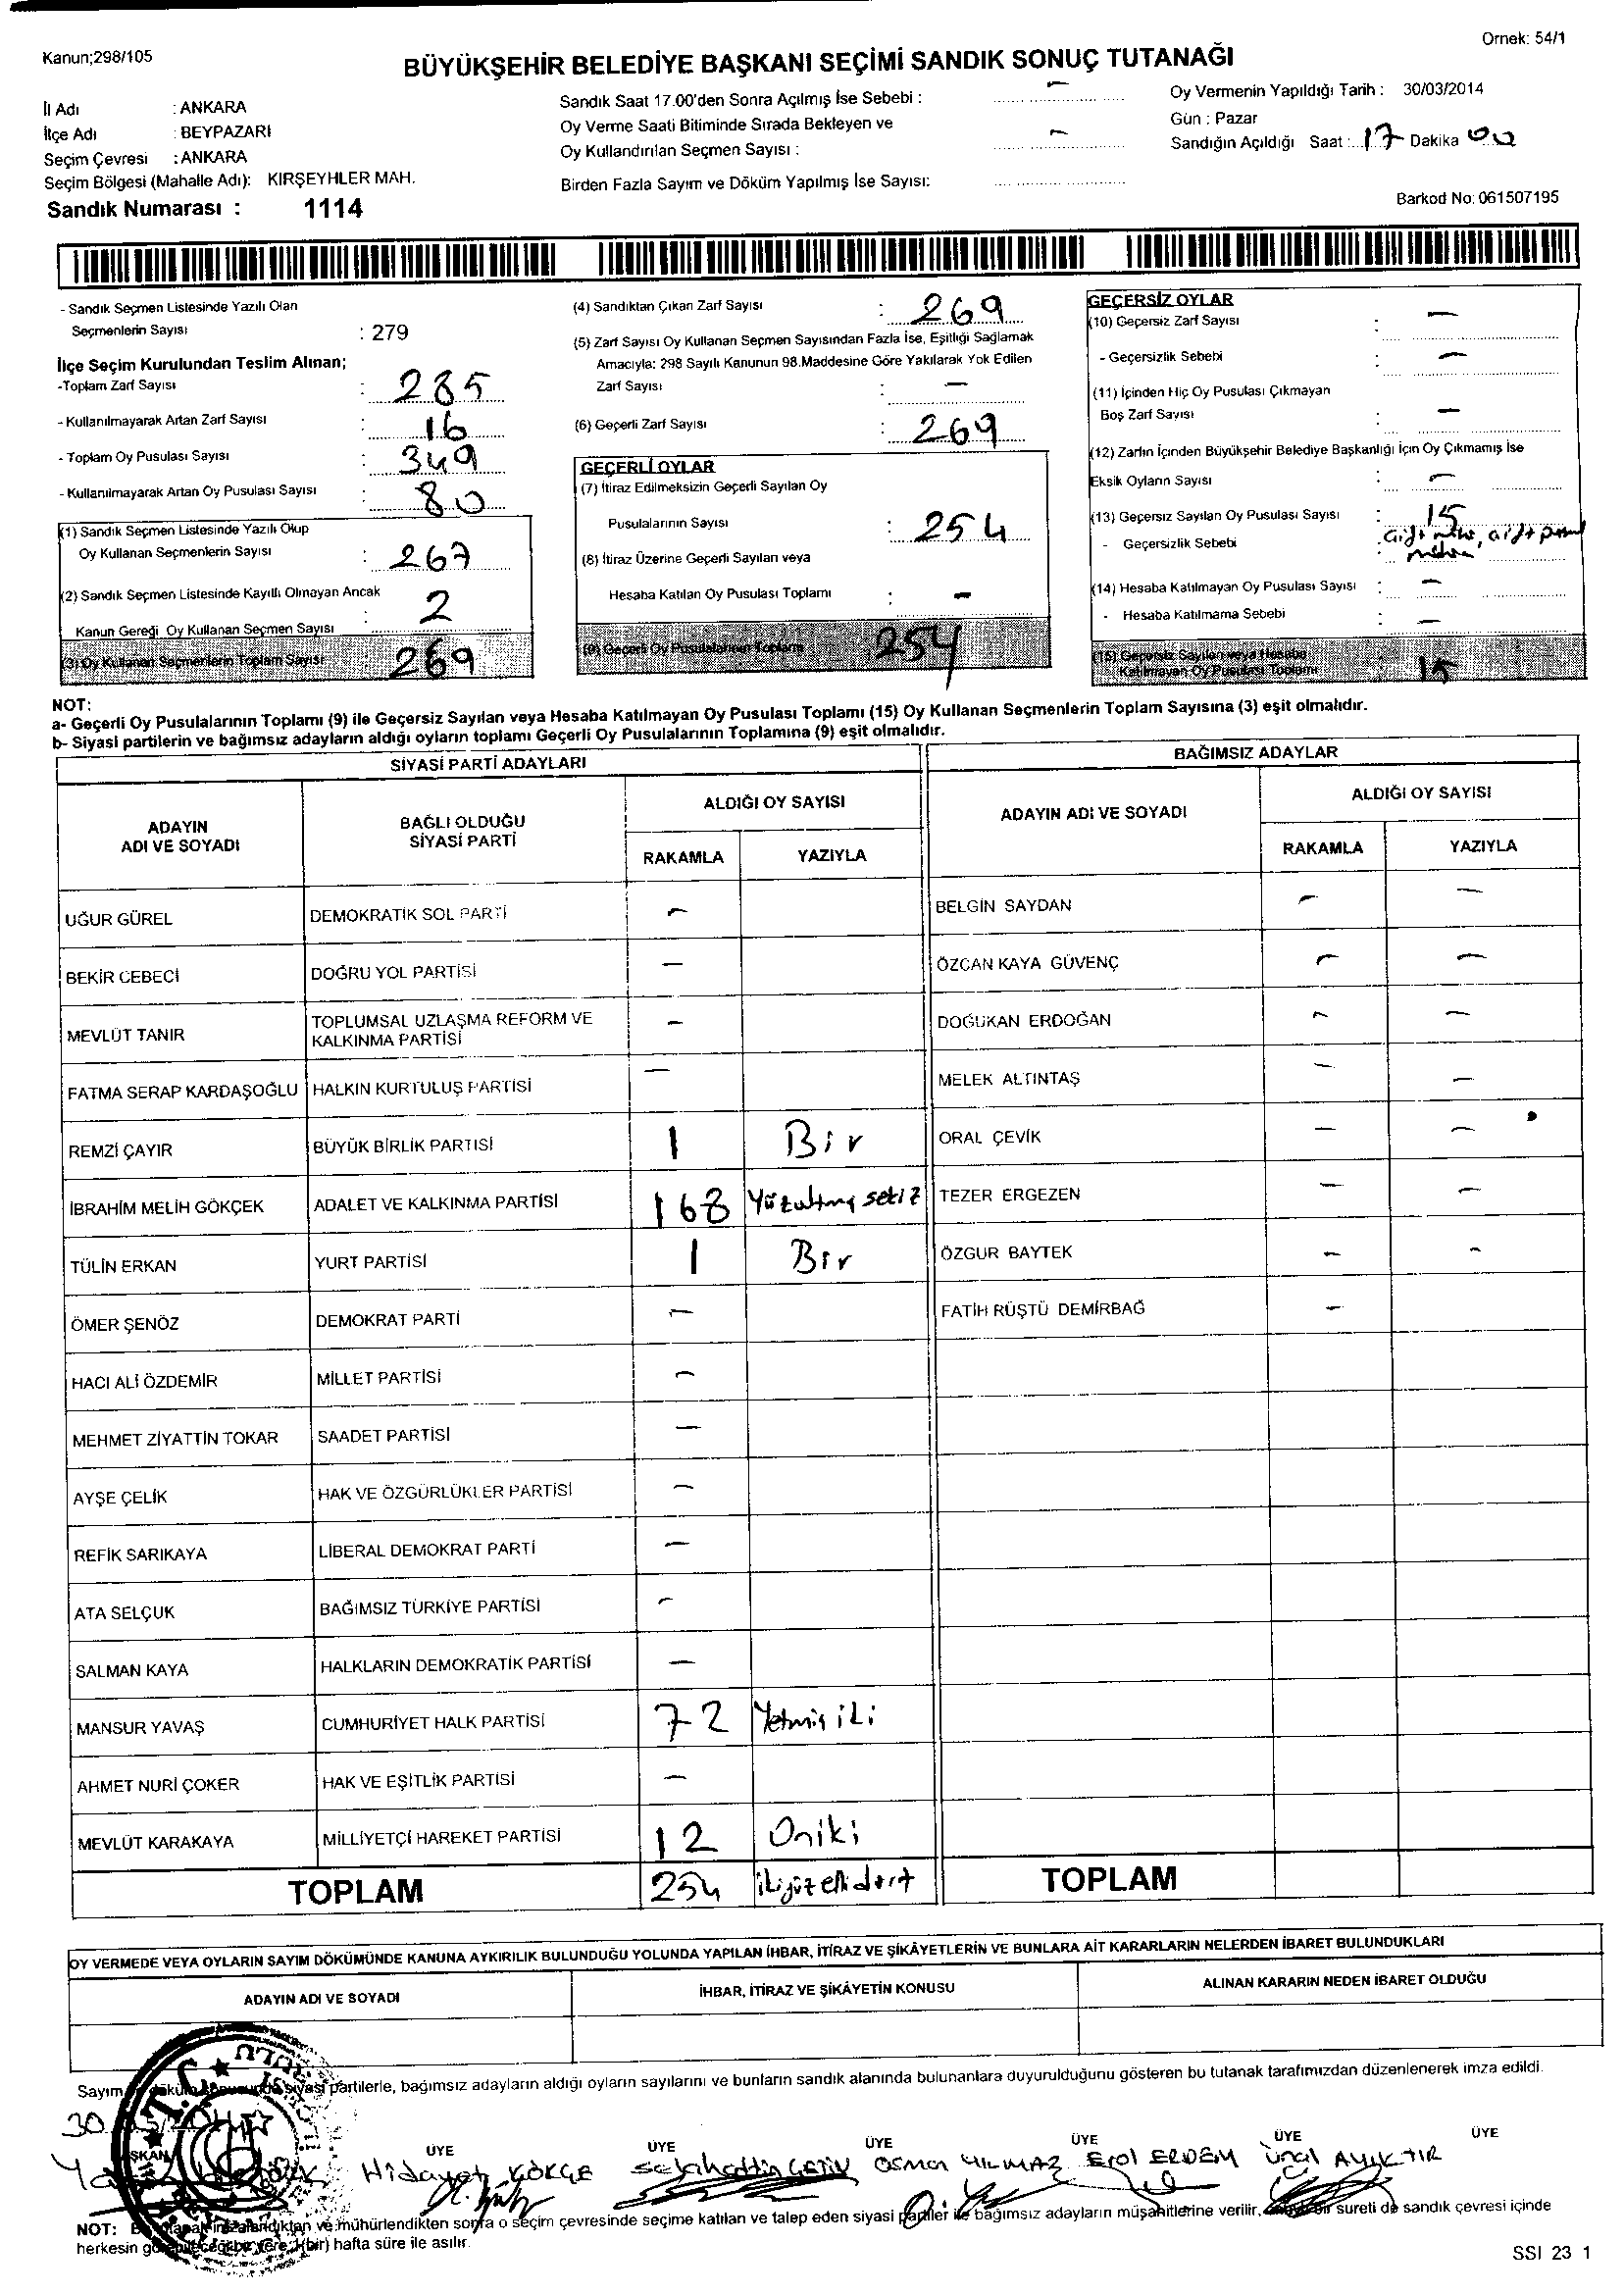 Kanun;298/105
Ornek: 54/1
BÜYÜKŞEHİR BELEDİYE BAŞKANI SEÇİMİ SANDIK SONUÇ TUTANAĞI
İl Adı : ANKARA
İlçe Adı : BEYPAZARI
Seçim Çevresi : ANKARA
Seçim Bölgesi (Mahalle Adı): KIRŞEYHLER MAH.
Sandık Numarası : 1114
Sandık Saat 17.00'den Sonra Açılmış İse Sebebi : –
Oy Verme Saati Bitiminde Sırada Bekleyen ve
Oy Kullandırılan Seçmen Sayısı : –
Birden Fazla Sayım ve Döküm Yapılmış İse Sayısı:
Oy Vermenin Yapıldığı Tarih : 30/03/2014
Gün : Pazar
Sandığın Açıldığı Saat : 17 Dakika 00
Barkod No: 061507195
- Sandık Seçmen Listesinde Yazılı Olan
Seçmenlerin Sayısı : 279
İlçe Seçim Kurulundan Teslim Alınan;
-Toplam Zarf Sayısı : 285
- Kullanılmayarak Artan Zarf Sayısı : 16
- Toplam Oy Pusulası Sayısı : 349
- Kullanılmayarak Artan Oy Pusulası Sayısı : 80
(1) Sandık Seçmen Listesinde Yazılı Olup
Oy Kullanan Seçmenlerin Sayısı : 267
(2) Sandık Seçmen Listesinde Kayıtlı Olmayan Ancak
Kanun Gereği Oy Kullanan Seçmen Sayısı 2
(3) Oy Kullanan Seçmenlerin Toplam Sayısı : 269
(4) Sandıktan Çıkan Zarf Sayısı : 269
(5) Zarf Sayısı Oy Kullanan Seçmen Sayısından Fazla İse, Eşitliği Sağlamak
Amacıyla: 298 Sayılı Kanunun 98.Maddesine Göre Yakılarak Yok Edilen
Zarf Sayısı : –
(6) Geçerli Zarf Sayısı : 269
GEÇERLİ OYLAR
(7) İtiraz Edilmeksizin Geçerli Sayılan Oy
Pusulalarının Sayısı : 254
(8) İtiraz Üzerine Geçerli Sayılan veya
Hesaba Katılan Oy Pusulası Toplamı : –
(9) Geçerli Oy Pusulalarının Toplamı 254
GEÇERSİZ OYLAR
(10) Geçersiz Zarf Sayısı : –
- Geçersizlik Sebebi : –
(11) İçinden Hiç Oy Pusulası Çıkmayan
Boş Zarf Sayısı : –
(12) Zarfın İçinden Büyükşehir Belediye Başkanlığı İçin Oy Çıkmamış İse
Eksik Oyların Sayısı : –
(13) Geçersiz Sayılan Oy Pusulası Sayısı : 15
- Geçersizlik Sebebi : çift
(14) Hesaba Katılmayan Oy Pusulası Sayısı : –
- Hesaba Katılmama Sebebi : –
(15) Geçersiz Sayılan veya Hesaba
Katılmayan Oy Pusulası Toplamı 15
NOT:
a- Geçerli Oy Pusulalarının Toplamı (9) ile Geçersiz Sayılan veya Hesaba Katılmayan Oy Pusulası Toplamı (15) Oy Kullanan Seçmenlerin Toplam Sayısına (3) eşit olmalıdır.
b- Siyasi partilerin ve bağımsız adayların aldığı oyların toplamı Geçerli Oy Pusulalarının Toplamına (9) eşit olmalıdır.
SİYASİ PARTİ ADAYLARI
ADAYIN ADI VE SOYADI
BAĞLI OLDUĞU SİYASİ PARTİ
ALDIĞI OY SAYISI
RAKAMLA YAZIYLA
UĞUR GÜREL DEMOKRATİK SOL PARTİ –
BEKİR CEBECİ DOĞRU YOL PARTİSİ –
MEVLÜT TANIR TOPLUMSAL UZLAŞMA REFORM VE
KALKINMA PARTİSİ –
FATMA SERAP KARDAŞOĞLU HALKIN KURTULUŞ PARTİSİ –
REMZİ ÇAYIR BÜYÜK BİRLİK PARTİSİ 1 Bir
İBRAHİM MELİH GÖKÇEK ADALET VE KALKINMA PARTİSİ 168 Yüzaltmış sekiz
TÜLİN ERKAN YURT PARTİSİ 1 Bir
ÖMER ŞENÖZ DEMOKRAT PARTİ –
HACI ALİ ÖZDEMİR MİLLET PARTİSİ –
MEHMET ZİYATTİN TOKAR SAADET PARTİSİ –
AYŞE ÇELİK HAK VE ÖZGÜRLÜKLER PARTİSİ –
REFİK SARIKAYA LİBERAL DEMOKRAT PARTİ –
ATA SELÇUK BAĞIMSIZ TÜRKİYE PARTİSİ –
SALMAN KAYA HALKLARIN DEMOKRATİK PARTİSİ –
MANSUR YAVAŞ CUMHURİYET HALK PARTİSİ 72 Yetmiş iki
AHMET NURİ ÇOKER HAK VE EŞİTLİK PARTİSİ –
MEVLÜT KARAKAYA MİLLİYETÇİ HAREKET PARTİSİ 12 Oniki
TOPLAM 254 ikiyüz ellidört
BAĞIMSIZ ADAYLAR
ADAYIN ADI VE SOYADI
ALDIĞI OY SAYISI
RAKAMLA YAZIYLA
BELGİN SAYDAN – –
ÖZCAN KAYA GÜVENÇ – –
DOĞUKAN ERDOĞAN – –
MELEK ALTINTAŞ – –
ORAL ÇEVİK – –
TEZER ERGEZEN – –
ÖZGUR BAYTEK – –
FATİH RÜŞTÜ DEMİRBAĞ –
TOPLAM
OY VERMEDE VEYA OYLARIN SAYIM DÖKÜMÜNDE KANUNA AYKIRILIK BULUNDUĞU YOLUNDA YAPILAN İHBAR, İTİRAZ VE ŞİKÂYETLERİN VE BUNLARA AİT KARARLARIN NELERDEN İBARET BULUNDUKLARI
ADAYIN ADI VE SOYADI
İHBAR, İTİRAZ VE ŞİKÂYETİN KONUSU
ALINAN KARARIN NEDEN İBARET OLDUĞU
Sayım döküm sonucunda siyasi partilerle, bağımsız adayların aldığı oyların sayılarını ve bunların sandık alanında bulunanlara duyurulduğunu gösteren bu tutanak tarafımızdan düzenlenerek imza edildi.
T.C.
ÜYE ÜYE ÜYE ÜYE ÜYE ÜYE
Hidayet GÖKÇE Selahattin ÇETİN Osman YILMAZ Erol ERDEM Ünal
NOT: Bu tutanak imzalandıktan ve mühürlendikten sonra o seçim çevresinde seçime katılan ve talep eden siyasi partiler ile bağımsız adayların müşahitlerine verilir, bir sureti de sandık çevresi içinde
herkesin görebileceği bir yere, (bir) hafta süre ile asılır.
SSI 23 1